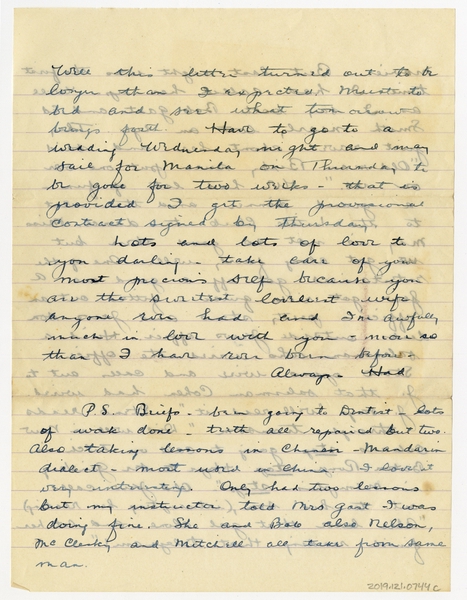 Well this letter turned out to be
longer than I expected. Must to
bed and see what tomorrow
brings forth - Have to go to a
wedding Wednesday night and may
sail for Manila on Thursday to
be gone for two weeks - that is
provided I get the provisional
contract signed by Thursday.
Lots and lots of love to
you darling - take care of your
most precious self because you
are the sweetest, loveliest wife
anyone ever had and I'm awfully
much in love with you - more so
than I have ever been before -
Always - Had
P.S. Briefs - been going to Dentist & lots
of work done - teeth all repaired but two.
Also taking lessons in Chinese - Mandarin
dialect - most used in China - I love it
very interesting. Only had two lessons
but my instructor told Mrs Gast I was
doing fine. She and Bob also Nelson,
McClesky and Mitchell all take from same
man.
2019.121.0744c